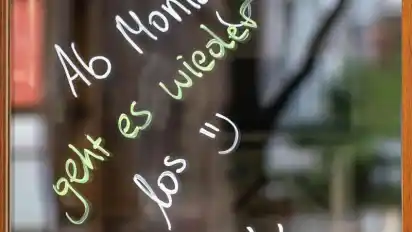 Ab
geht es wieder
los =)